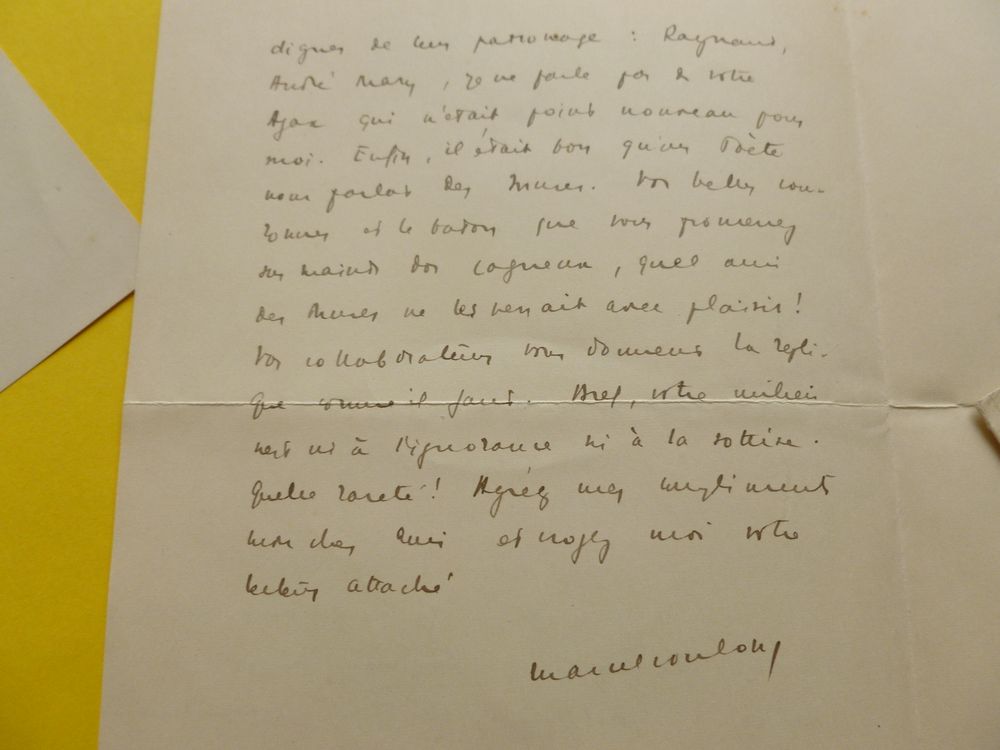 dignes de leur patronage : Raynaud,
André Mary, je ne parle pas de votre
Ajax qui n'était point nouveau pour
moi. Enfin, il était bon qu'un Poète
nous parlât des Muses. Vos belles cou-
ronnes et le bâton que vous promenez
sur maints dos cagneux, quel ami
des Muses ne les verrait avec plaisir !
Vos collaborateurs vous donnent la répli-
que comme il faut. Bref, votre milieu
n'est ni à l'ignorance ni à la sottise.
Quelle rareté ! Agréez mes compliments
mon cher Ami et croyez moi votre
lecteur attaché
Marcel Coulon